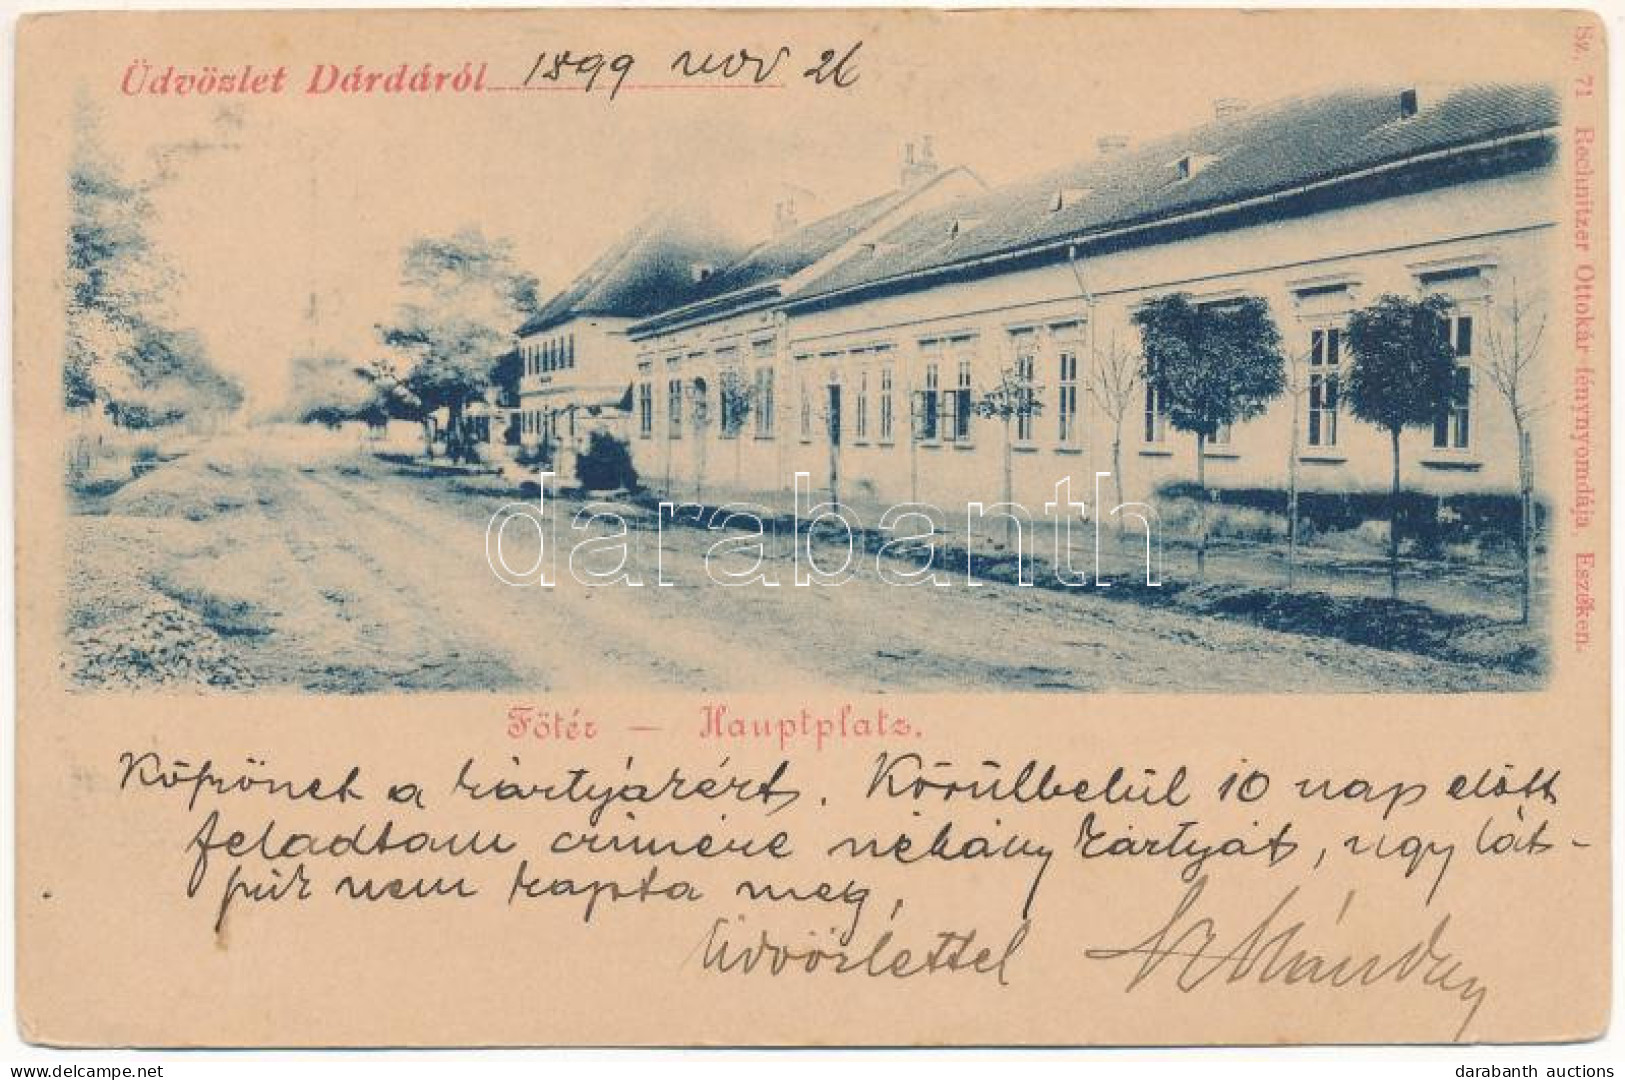 Üdvözlet Dárdáról 1899 nov 26
Sz. 71 Rechnitzer Ottokár fénynyomdája, Eszéken.
darabanth
Főtér — Hauptplatz.
Köszönet a kártyáért. Körülbelül 10 nap előtt
feladtam címére néhány kártyát, úgy lát-
szik nem kapta meg,
Üdvözlettel
www.delcampe.net
darabanth auctions